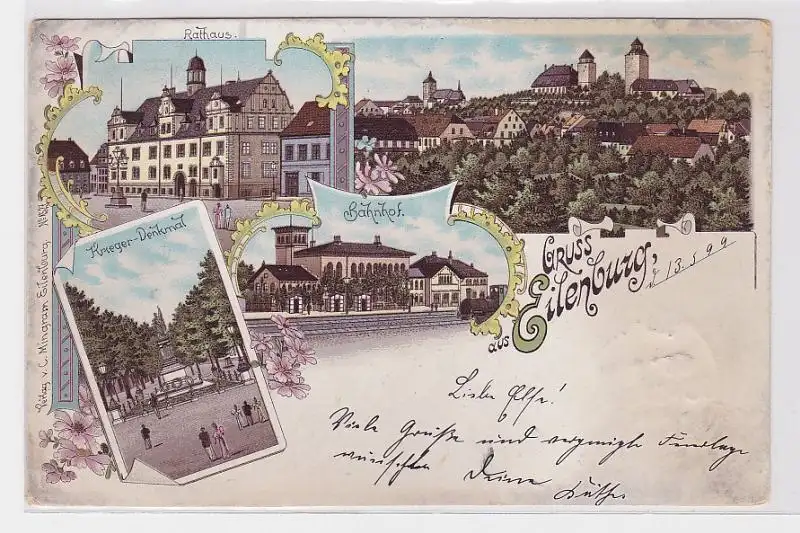 Rathaus.
Krieger-Denkmal
Bahnhof.
Gruss
aus Eilenburg,
d 13.5.99
Liebe Else!
Viele Grüße und vergnügte Feiertage
wünschen Deine
Käthe
Verlag v. C. Mingram Eilenburg